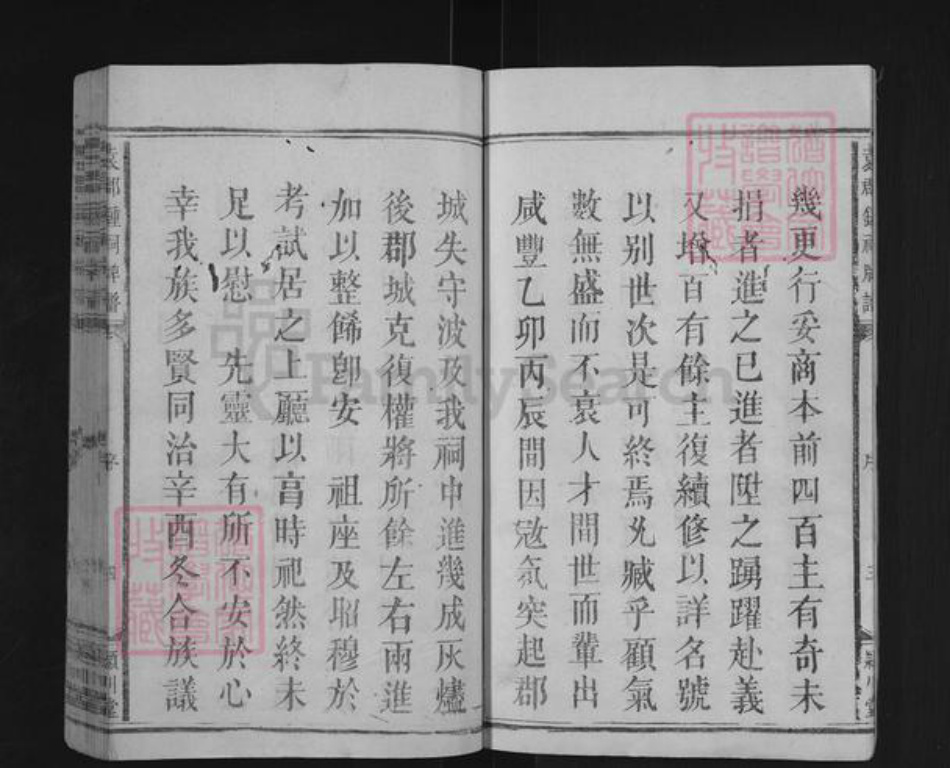 幾更行妥商本前四百主有奇未
捐者進之已進者陞之踴躍赴義
又增百有餘主復續修以詳名號
以别世次是可終焉允臧乎顧氣
數無盛而不衰人才間世而輩出
咸豐乙卯丙辰間因宼氛突起郡
城失守波及我祠中進幾成灰燼
後郡城克復權將所餘左右兩進
加以整餙卽安 祖座及昭穆於
考試居之上廳以亯時祀然終未
足以慰 先靈大有所不安於心
幸我族多賢同治辛酉冬合族議
袁郡鍾祠牌譜
序
四
潁川堂
FamilySearch